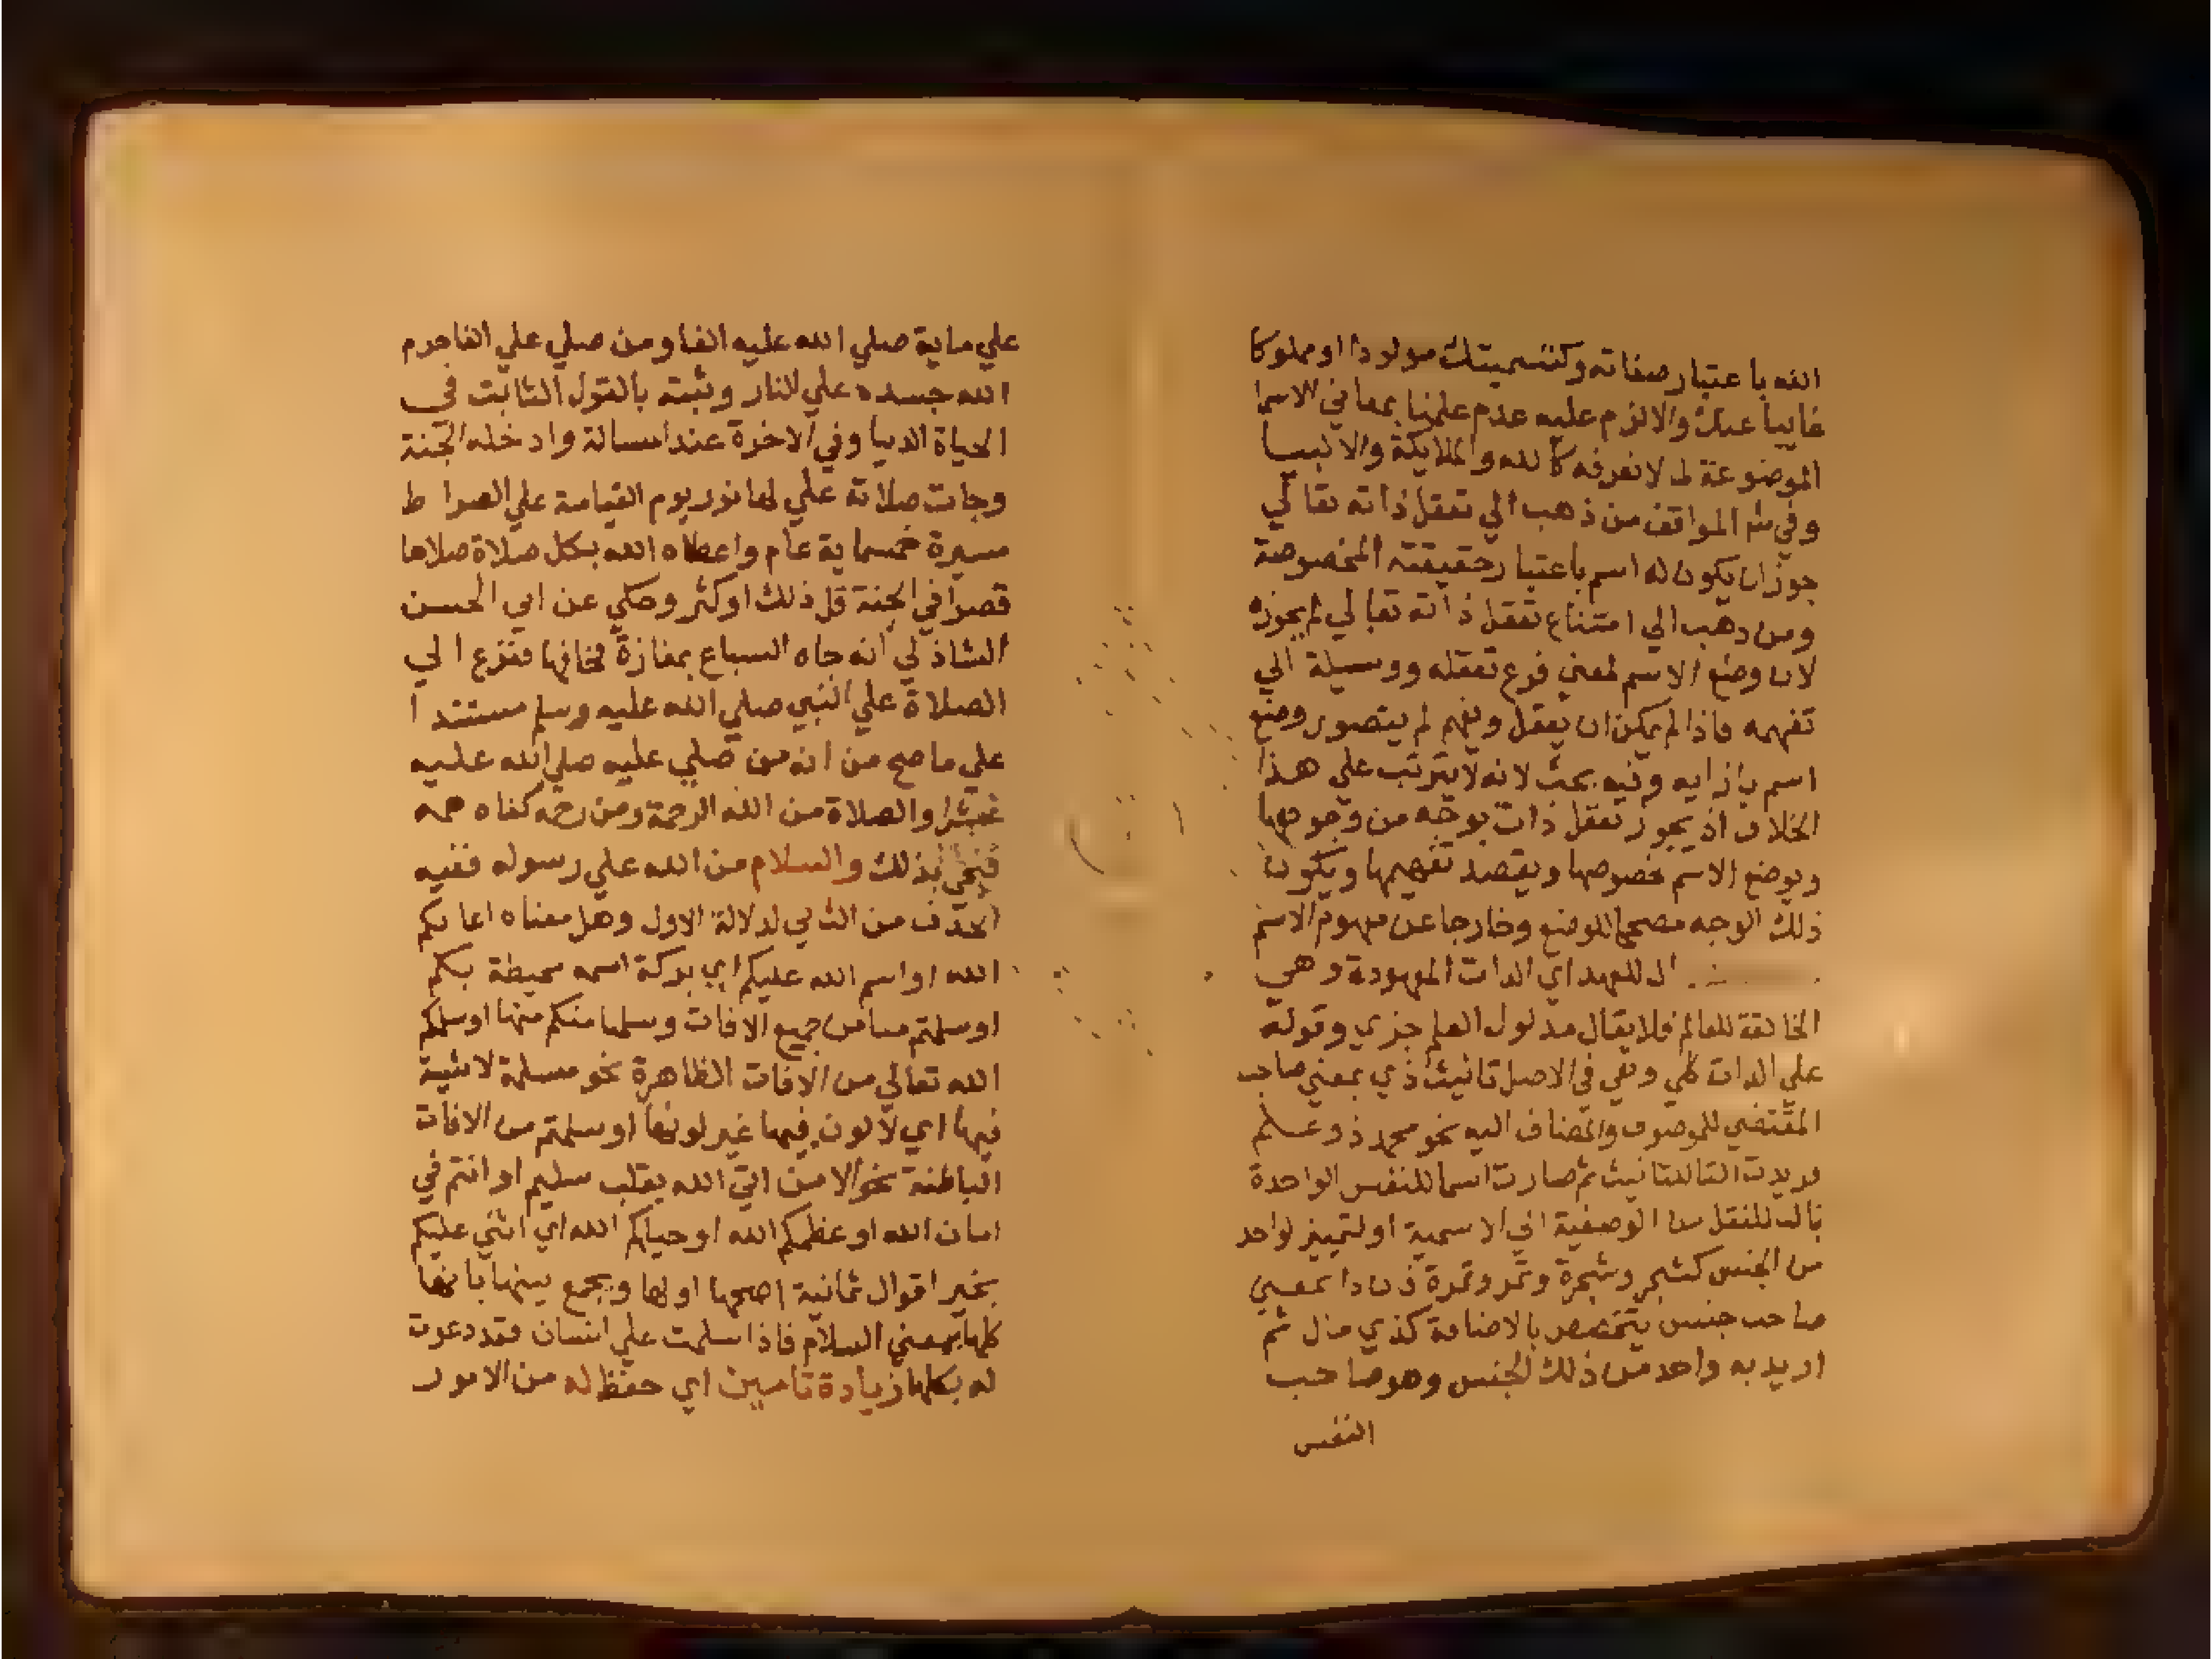 الله باعتبار صفاته وكتسميتك مولودا او مملوكا
غايبا عنك والالزم عليه عدم علمنا بمعاني الاسما
الموضوعة لما لانعرفه كالله والملايكة والانبيا
وفي شرح المواقف من ذهب الي تعقل ذاته تعالي
جوز ان يكون له اسم باعتبار حقيقته المخصوصة
ومن ذهب الي امتناع تعقل ذاته تعالي لم يجوزه
لان وضع الاسم لمعني فرع تعقله ووسيلة الي
تفهمه فاذا لم يمكن ان يعقل ويفهم لم يتصور وضع
اسم بازايه وفيه بحث لانه لا يترتب علي هذا
الخلاف اذ يجوز تعقل ذات بوجه من وجوهها
ويوضع الاسم لخصوصها ويقصد تفهيمها ويكون
ذلك الوجه مصححا للوضع وخارجا عن مفهوم الاسم
ال للعهد اي الذات المعهودة وهي
الخالقة للعالم فلا يقال مدلول العلم جزي وقوله
علي الذات كلي وهي في الاصل تانيث ذي بمعني صاحب
المقتضي للموصوف والمضاف اليه نحو محمد ذو علم
فزيدت التا للتانيث ثم صارت اسما للنفس الواحدة
فالتا للنقل من الوصفية الي الاسمية او لتمييز لواحد
من الجنس كشجر وشجرة وتمر وتمرة فان ذا بمعني
صاحب جنس يتخصص بالاضافة كذي مال ثم
اريد به واحد من ذلك الجنس وهو صاحب
النفس
علي ماية صلي الله عليه الفا ومن صلي علي الفا حرم
الله جسده علي لنار وثبته بالقول الثابت في
الحياة الدنيا وفي الاخرة عند المسالة وادخله الجنة
وجات صلاته علي لها نور يوم القيامة علي الصراط
مسيرة خمسماية عام واعطاه الله بكل صلاة صلاها
قصرا في الجنة قل ذلك او كثر وحكي عن ابي الحسن
الشاذلي انه جاه السباع بمفازة فخافها ففزع الي
الصلاة علي النبي صلي الله عليه وسلم مستندا
علي ما صح من انه من صلي عليه صلي الله عليه
عشرا والصلاة من الله الرحمة ومن رحمه كفاه همه
فنجي بذلك والسلام من الله علي رسوله ففيه
الحذف من الثاني لدلالة الاول وهل معناه اعانكم
الله او اسم الله عليكم اي بركة اسمه محيطة بكم
او سلمتم منا من جميع الافات وسلمنا منكم منها او سلمكم
الله تعالي من الافات الظاهرة نحو مسلمة لا شية
فيها اي لا لون فيها غير لونها او سلمتم من الافات
الباطنة نحو الا من اتي الله بقلب سليم او انتم في
امان الله او عظمكم الله او حياكم الله اي اثني عليكم
بخير اقوال ثمانية اصحها اولها ويجمع بينها بانها
كلها بمعني السلام فاذا سلمت علي انسان فقد دعوت
له بكلها زيادة تامين اي حفظ له من الامور